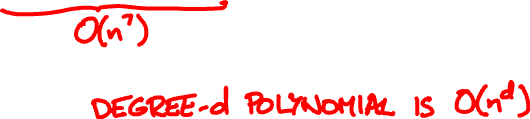 O(n⁷)
DEGREE-d POLYNOMIAL IS O(n^d)